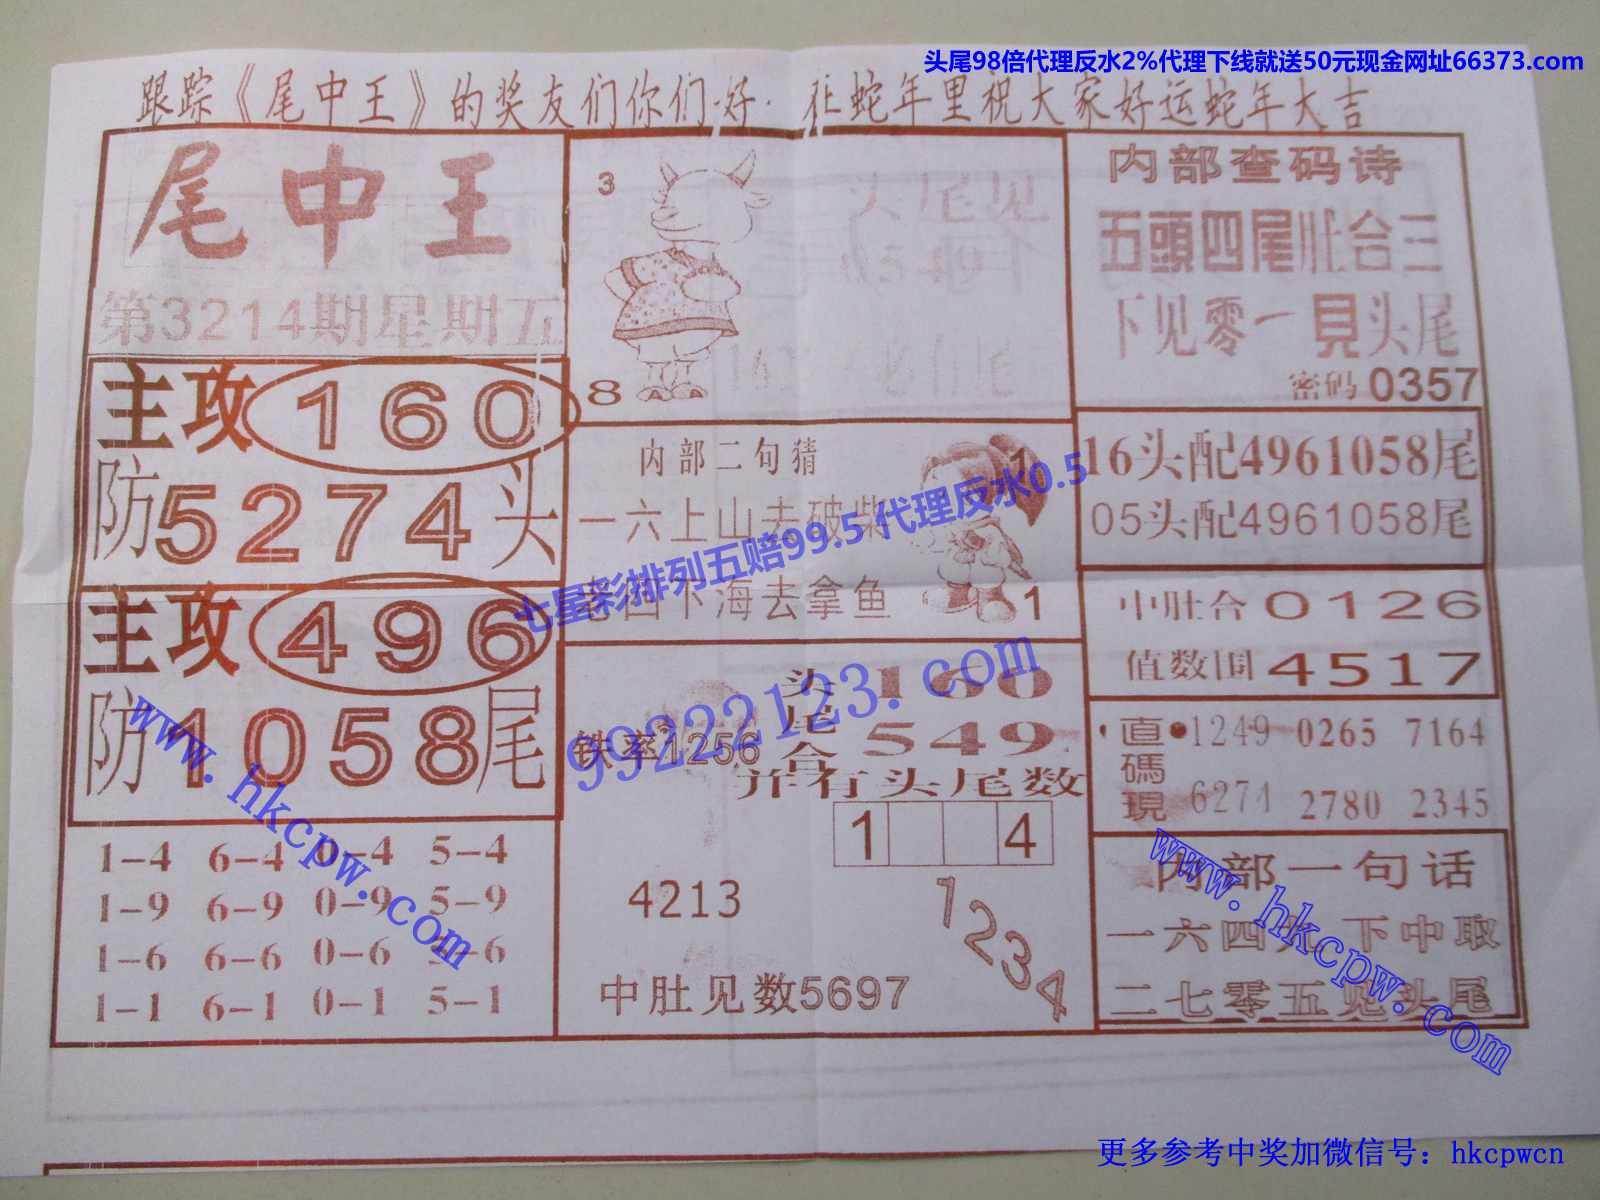 头尾98倍代理反水2%代理下线就送50元现金网址66373.com
跟踪《尾中王》的奖友们你们好.在蛇年里祝大家好运蛇年大吉
尾中王
第3214期星期五
主攻160
防5274头
主攻496
防1058尾
1-4 6-4 0-4 5-4
1-9 6-9 0-9 5-9
1-6 6-6 0-6 5-6
1-1 6-1 0-1 5-1
3
8
内部二句猜
一六上山去破柴
老四下海去拿鱼
1
1
七星彩排列五赔99.5 代理反水0.5
99222123.com
头160
尾
合549
铁率1256
开有头尾数
1 4
4213
1234
中肚见数5697
内部查码诗
五頭四尾肚合三
下见零一見头尾
密码0357
16头配4961058尾
05头配4961058尾
中肚合0126
值数围4517
直碼現
1249 0265 7164
6271 2780 2345
内部一句话
一六四九下中取
二七零五见头尾
www.hkcpw.com
www.hkcpw.com
更多参考中奖加微信号：hkcpwcn